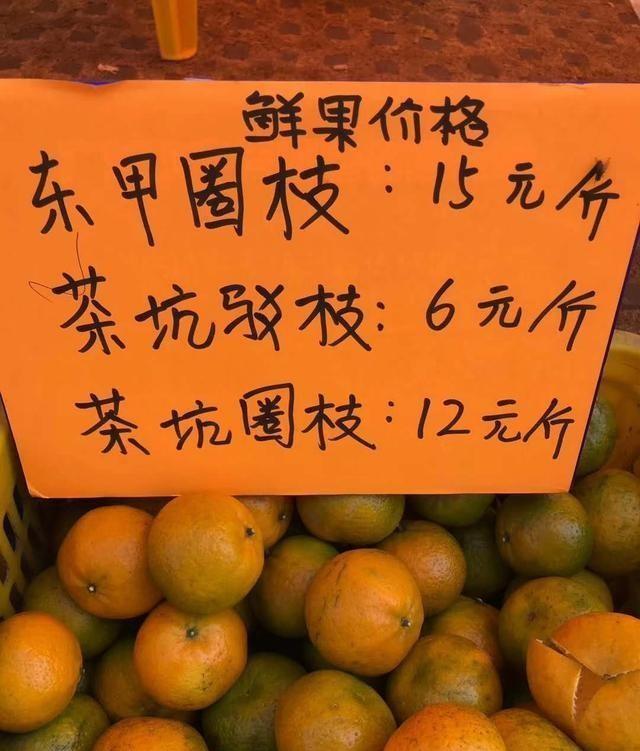 鲜果价格
东甲圈枝：15元/斤
茶坑驳枝：6元/斤
茶坑圈枝：12元/斤